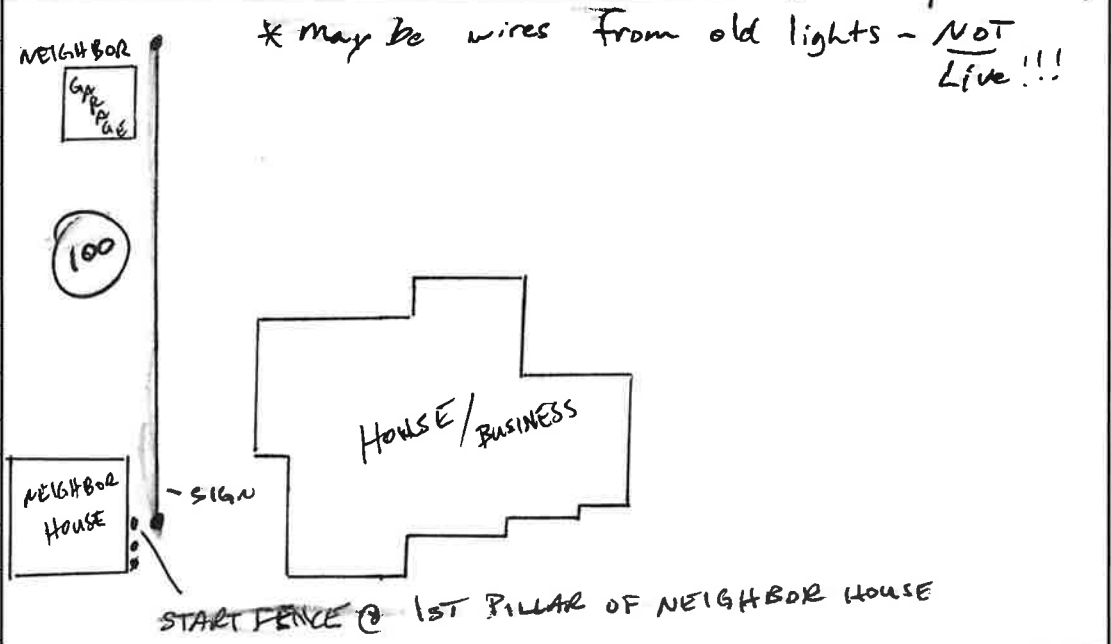 * may be wires from old lights - NOT
Live!!!
NEIGHBOR
GARAGE
100
HOUSE/BUSINESS
NEIGHBOR
HOUSE
- SIGN
START FENCE @ 1ST PILLAR OF NEIGHBOR HOUSE